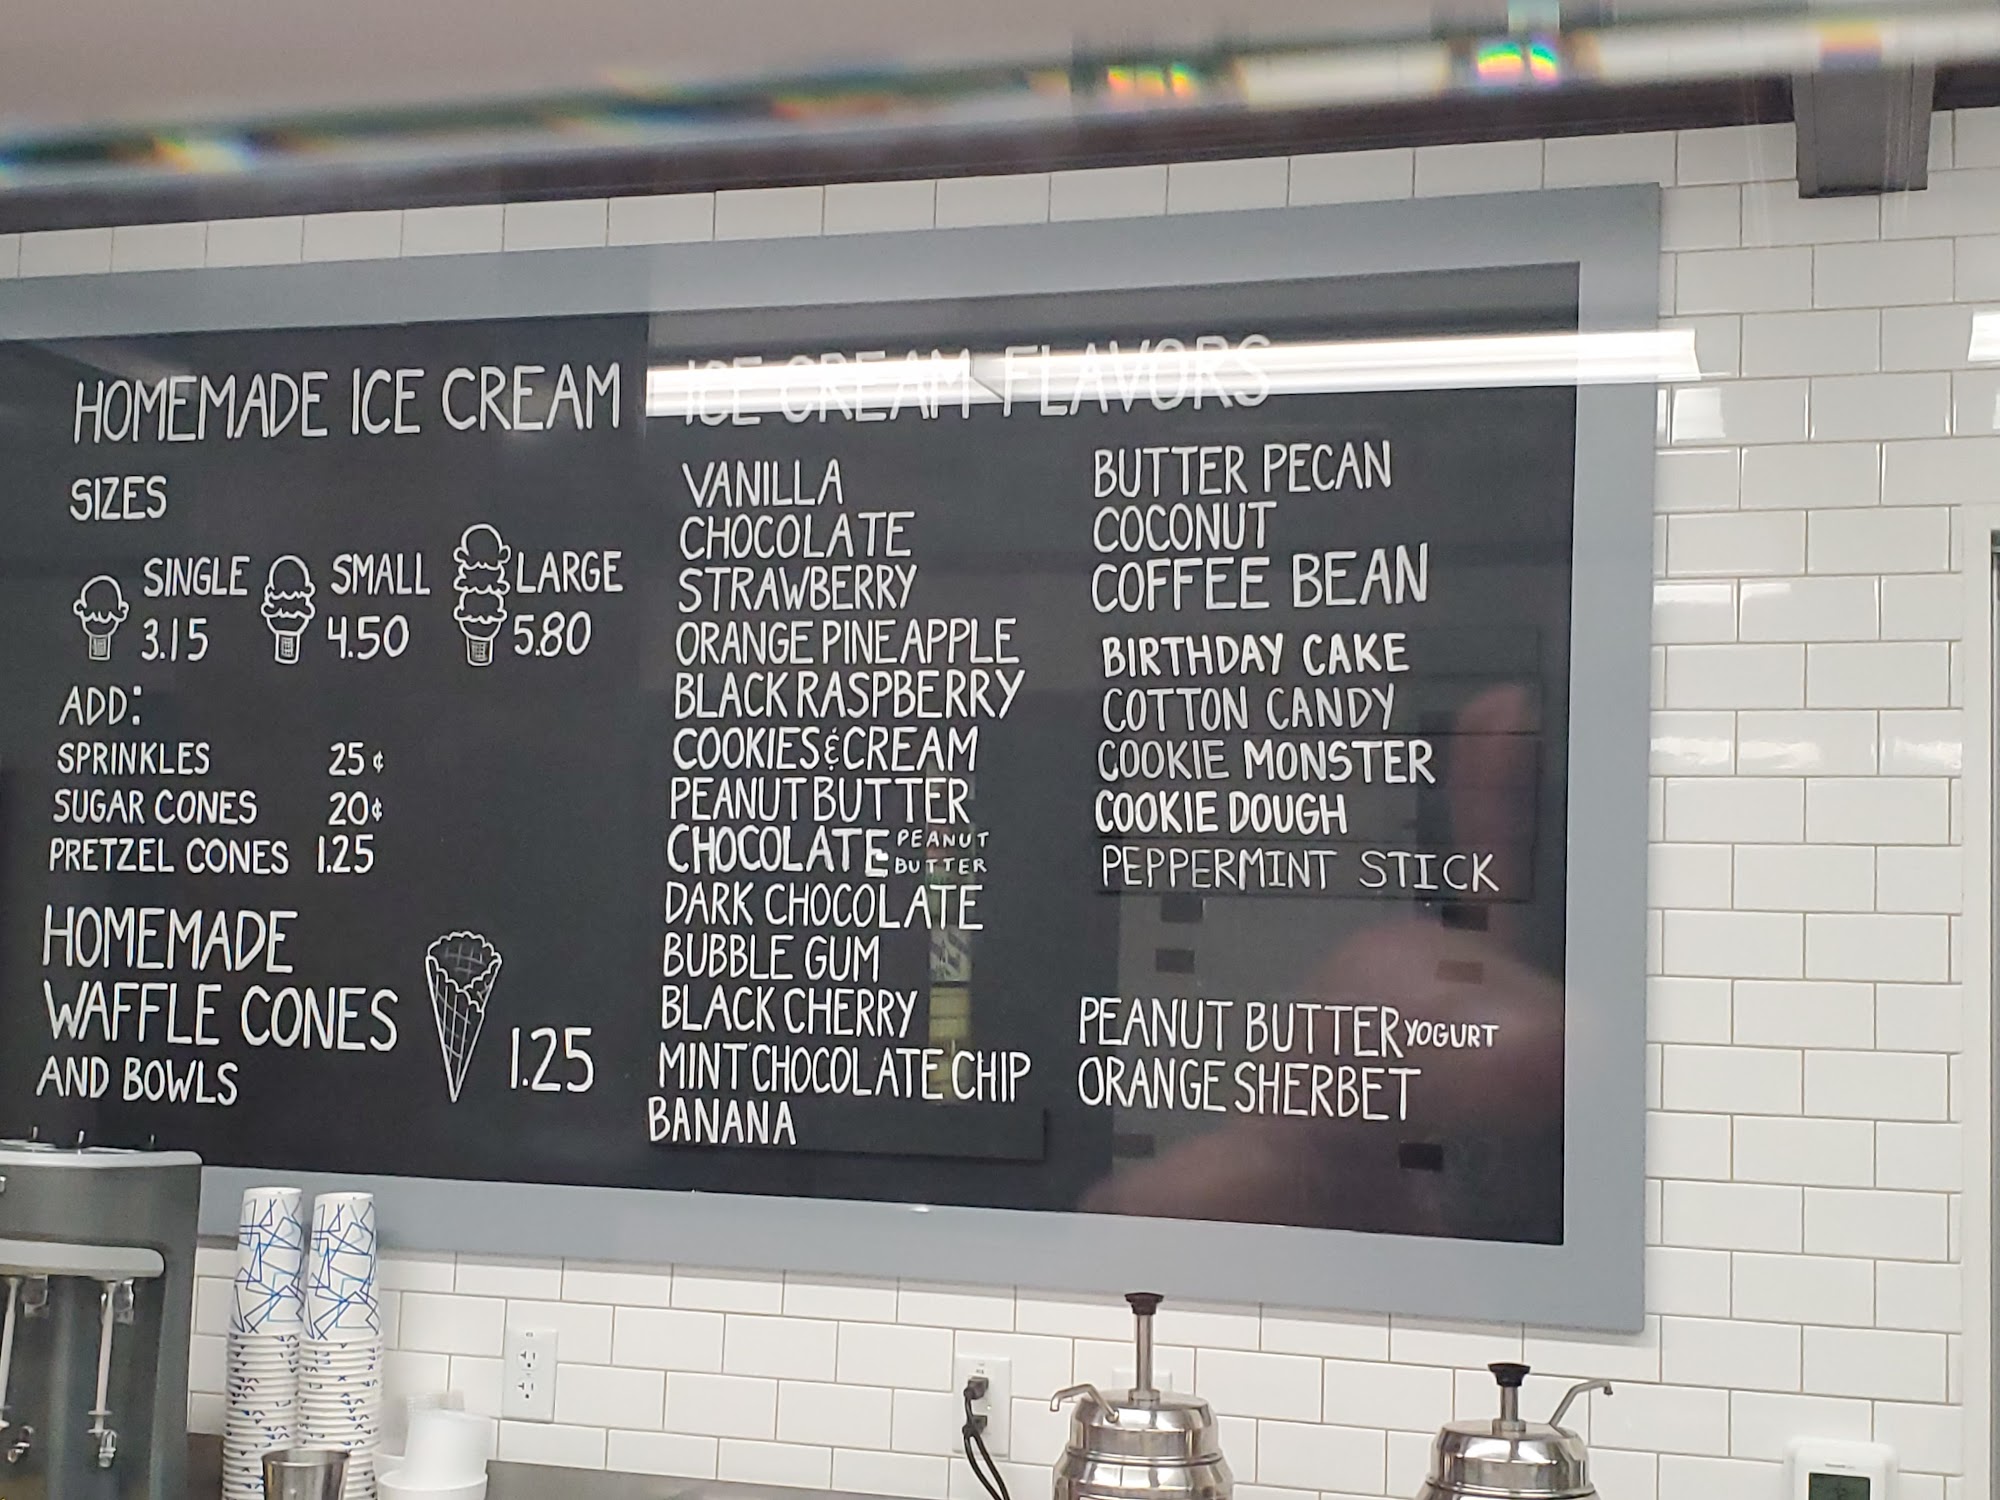 HOMEMADE ICE CREAM
SIZES
SINGLE
3.15
SMALL
4.50
LARGE
5.80
ADD:
SPRINKLES 25¢
SUGAR CONES 20¢
PRETZEL CONES 1.25
HOMEMADE
WAFFLE CONES
AND BOWLS
1.25
ICE CREAM FLAVORS
VANILLA
CHOCOLATE
STRAWBERRY
ORANGE PINEAPPLE
BLACK RASPBERRY
COOKIES & CREAM
PEANUT BUTTER
CHOCOLATE PEANUT BUTTER
DARK CHOCOLATE
BUBBLE GUM
BLACK CHERRY
MINT CHOCOLATE CHIP
BANANA
BUTTER PECAN
COCONUT
COFFEE BEAN
BIRTHDAY CAKE
COTTON CANDY
COOKIE MONSTER
COOKIE DOUGH
PEPPERMINT STICK
PEANUT BUTTER YOGURT
ORANGE SHERBET